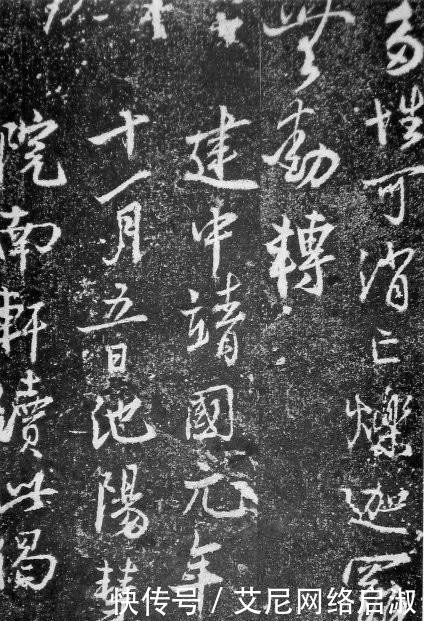 多性可消亡爍迦羅
無動轉
建中靖國元年
十一月五日池陽
院南軒此偈
快传号 / 艾尼网络启淑